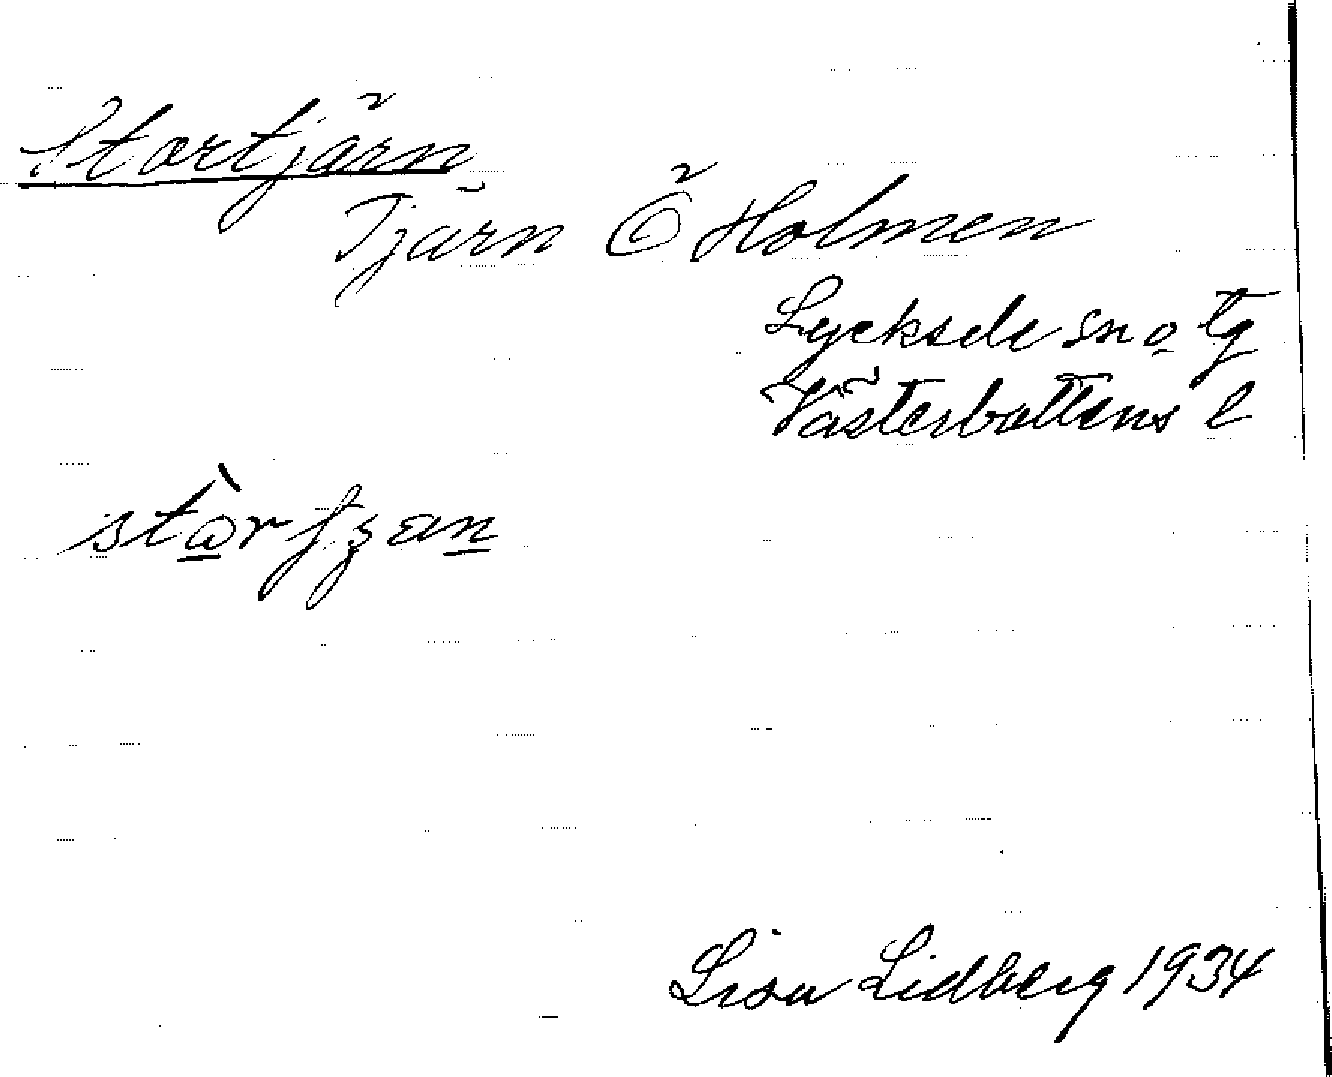 Stortjärn
Tjärn Ö Holmen
Lycksele sn o tg
Västerbottens l
Lisa Lidberg 1934